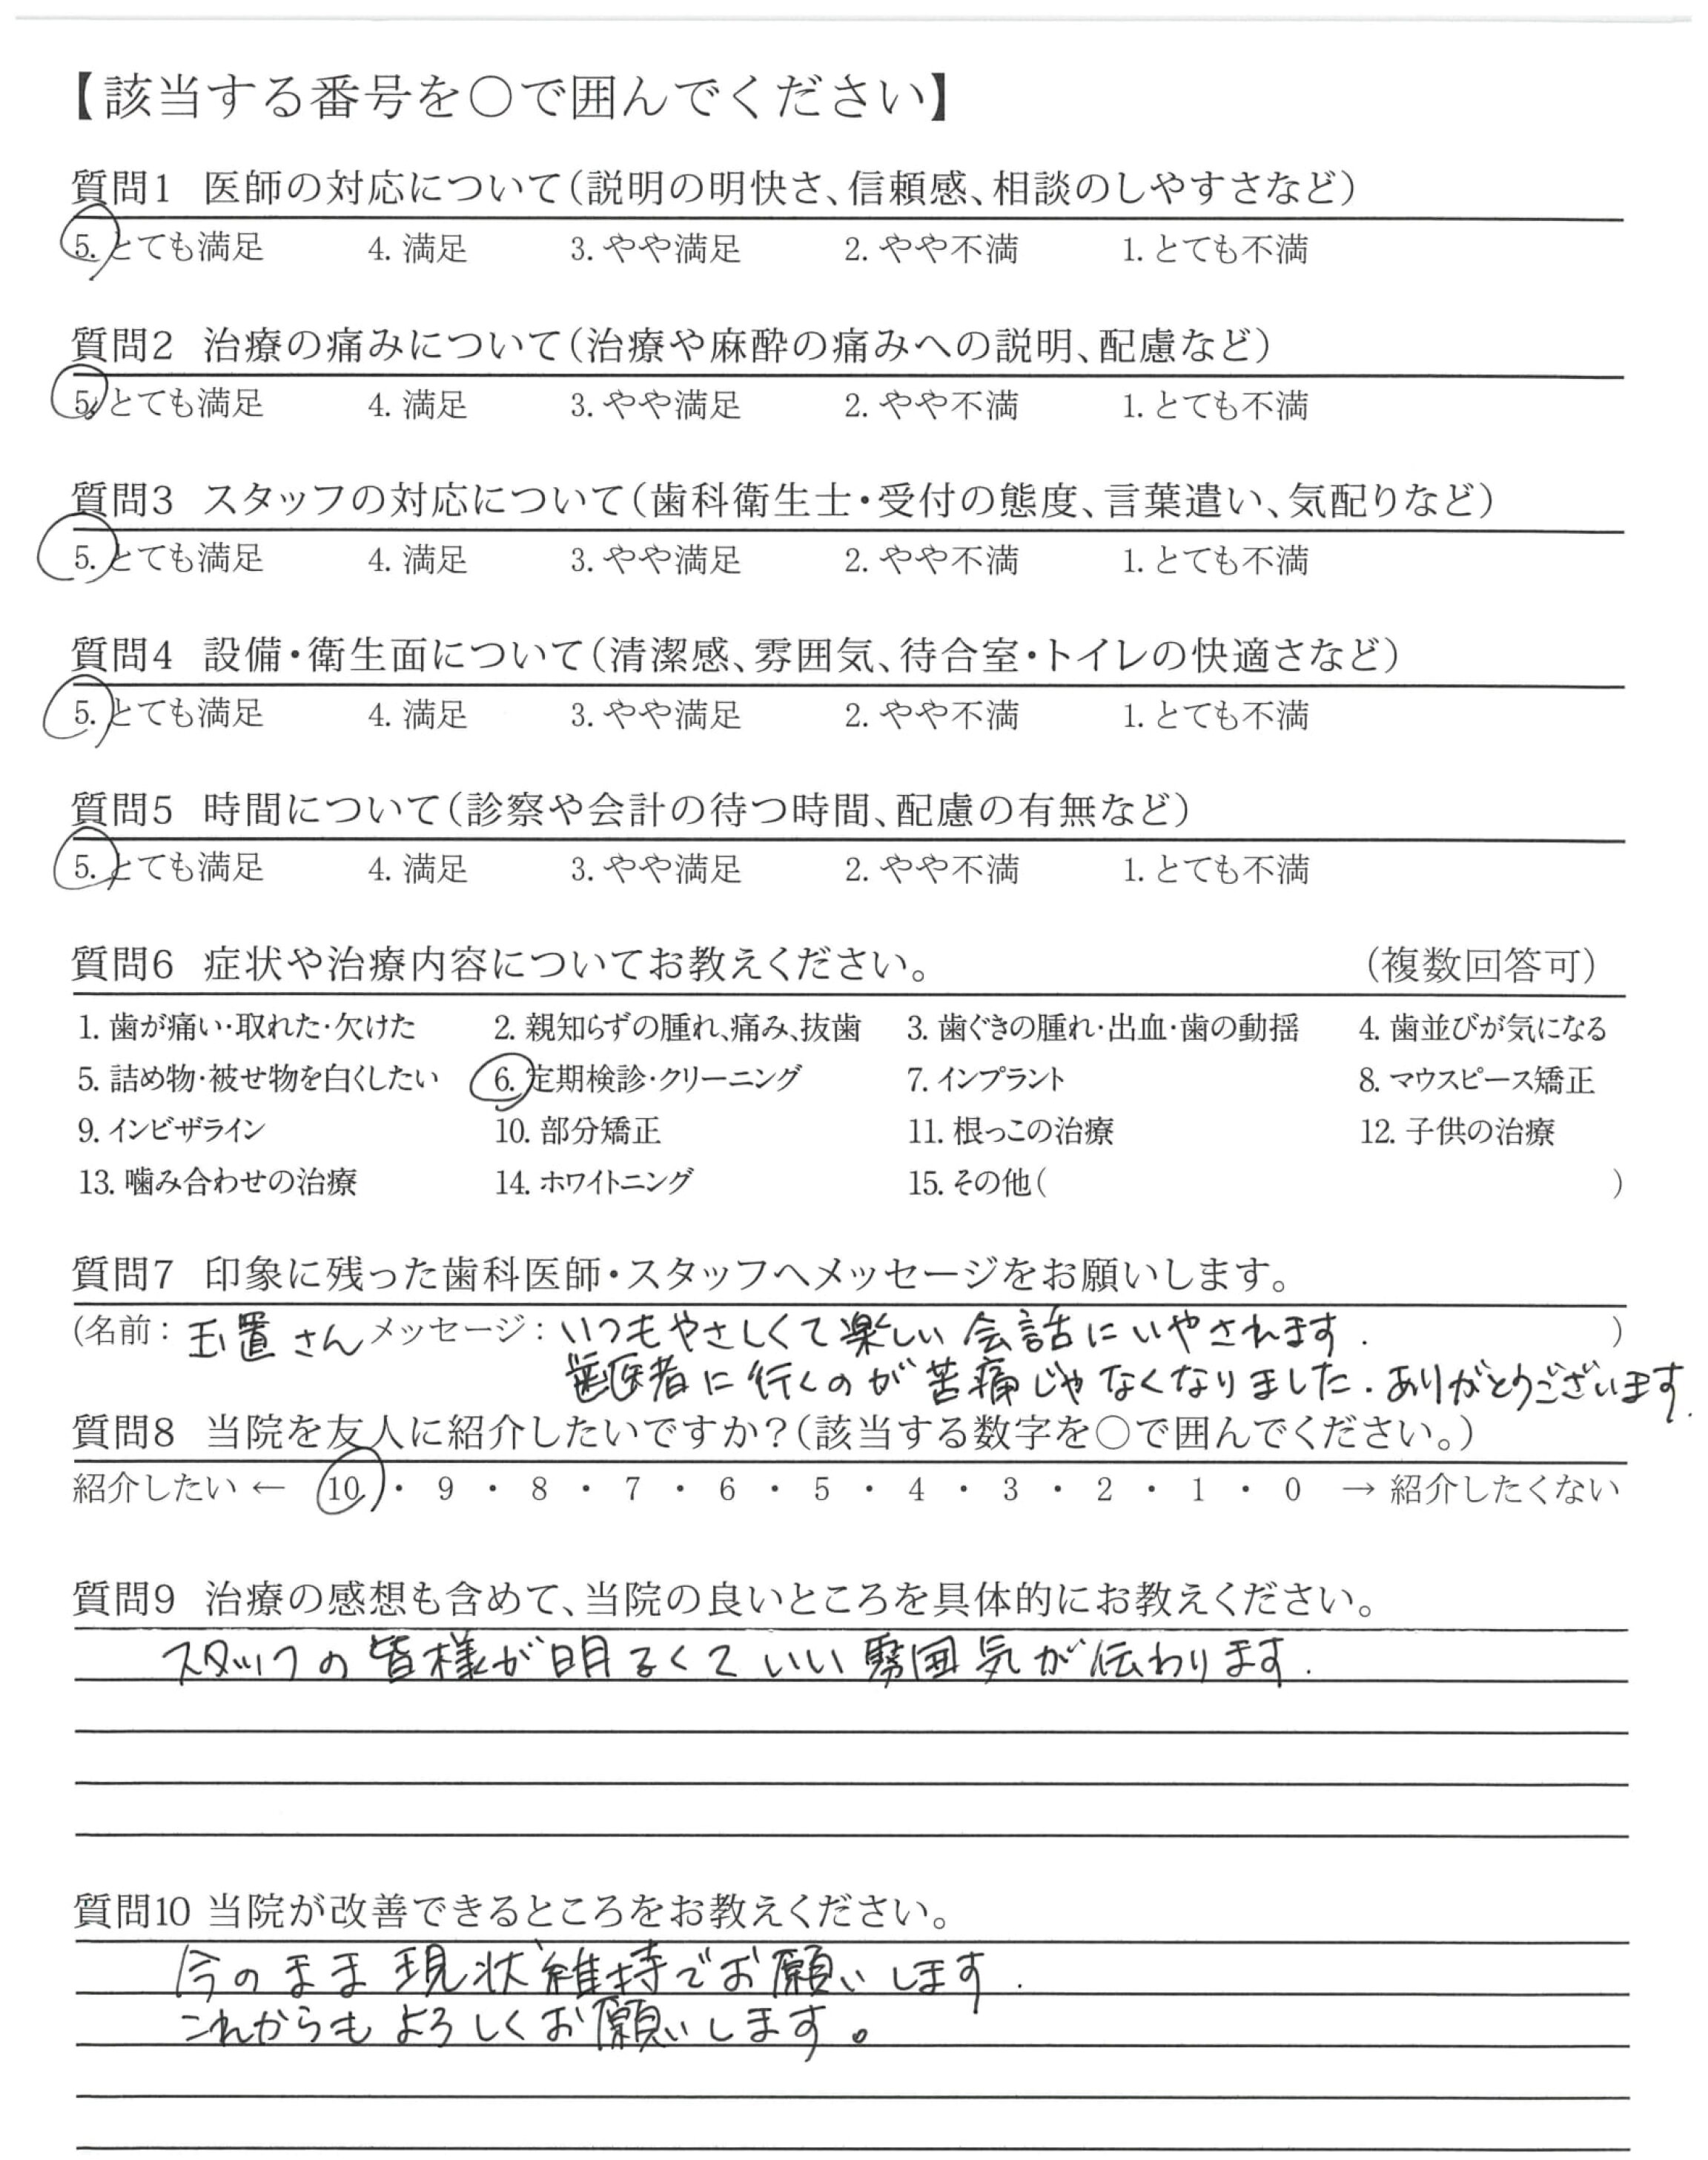 【該当する番号を○で囲んでください】
質問1 医師の対応について(説明の明快さ、信頼感、相談のしやすさなど)
5. とても満足 4. 満足 3. やや満足 2. やや不満 1. とても不満
質問2 治療の痛みについて(治療や麻酔の痛みへの説明、配慮など)
5. とても満足 4. 満足 3. やや満足 2. やや不満 1. とても不満
質問3 スタッフの対応について(歯科衛生士・受付の態度、言葉遣い、気配りなど)
5. とても満足 4. 満足 3. やや満足 2. やや不満 1. とても不満
質問4 設備・衛生面について(清潔感、雰囲気、待合室・トイレの快適さなど)
5. とても満足 4. 満足 3. やや満足 2. やや不満 1. とても不満
質問5 時間について(診察や会計の待つ時間、配慮の有無など)
5. とても満足 4. 満足 3. やや満足 2. やや不満 1. とても不満
質問6 症状や治療内容についてお教えください。 (複数回答可)
1. 歯が痛い・取れた・欠けた 2. 親知らずの腫れ、痛み、抜歯 3. 歯ぐきの腫れ・出血・歯の動揺 4. 歯並びが気になる
5. 詰め物・被せ物を白くしたい 6. 定期検診・クリーニング 7. インプラント 8. マウスピース矯正
9. インビザライン 10. 部分矯正 11. 根っこの治療 12. 子供の治療
13. 噛み合わせの治療 14. ホワイトニング 15. その他( )
質問7 印象に残った歯科医師・スタッフへメッセージをお願いします。
(名前: 玉置さん メッセージ: いつもやさしくて楽しい会話にいやされます. )
歯医者に行くのが苦痛じゃなくなりました. ありがとうございます.
質問8 当院を友人に紹介したいですか?(該当する数字を○で囲んでください。)
紹介したい ← 10 ・ 9 ・ 8 ・ 7 ・ 6 ・ 5 ・ 4 ・ 3 ・ 2 ・ 1 ・ 0 → 紹介したくない
質問9 治療の感想も含めて、当院の良いところを具体的にお教えください。
スタッフの皆様が明るくていい雰囲気が伝わります.
質問10 当院が改善できるところをお教えください。
今のまま現状維持でお願いします.
これからもよろしくお願いします。